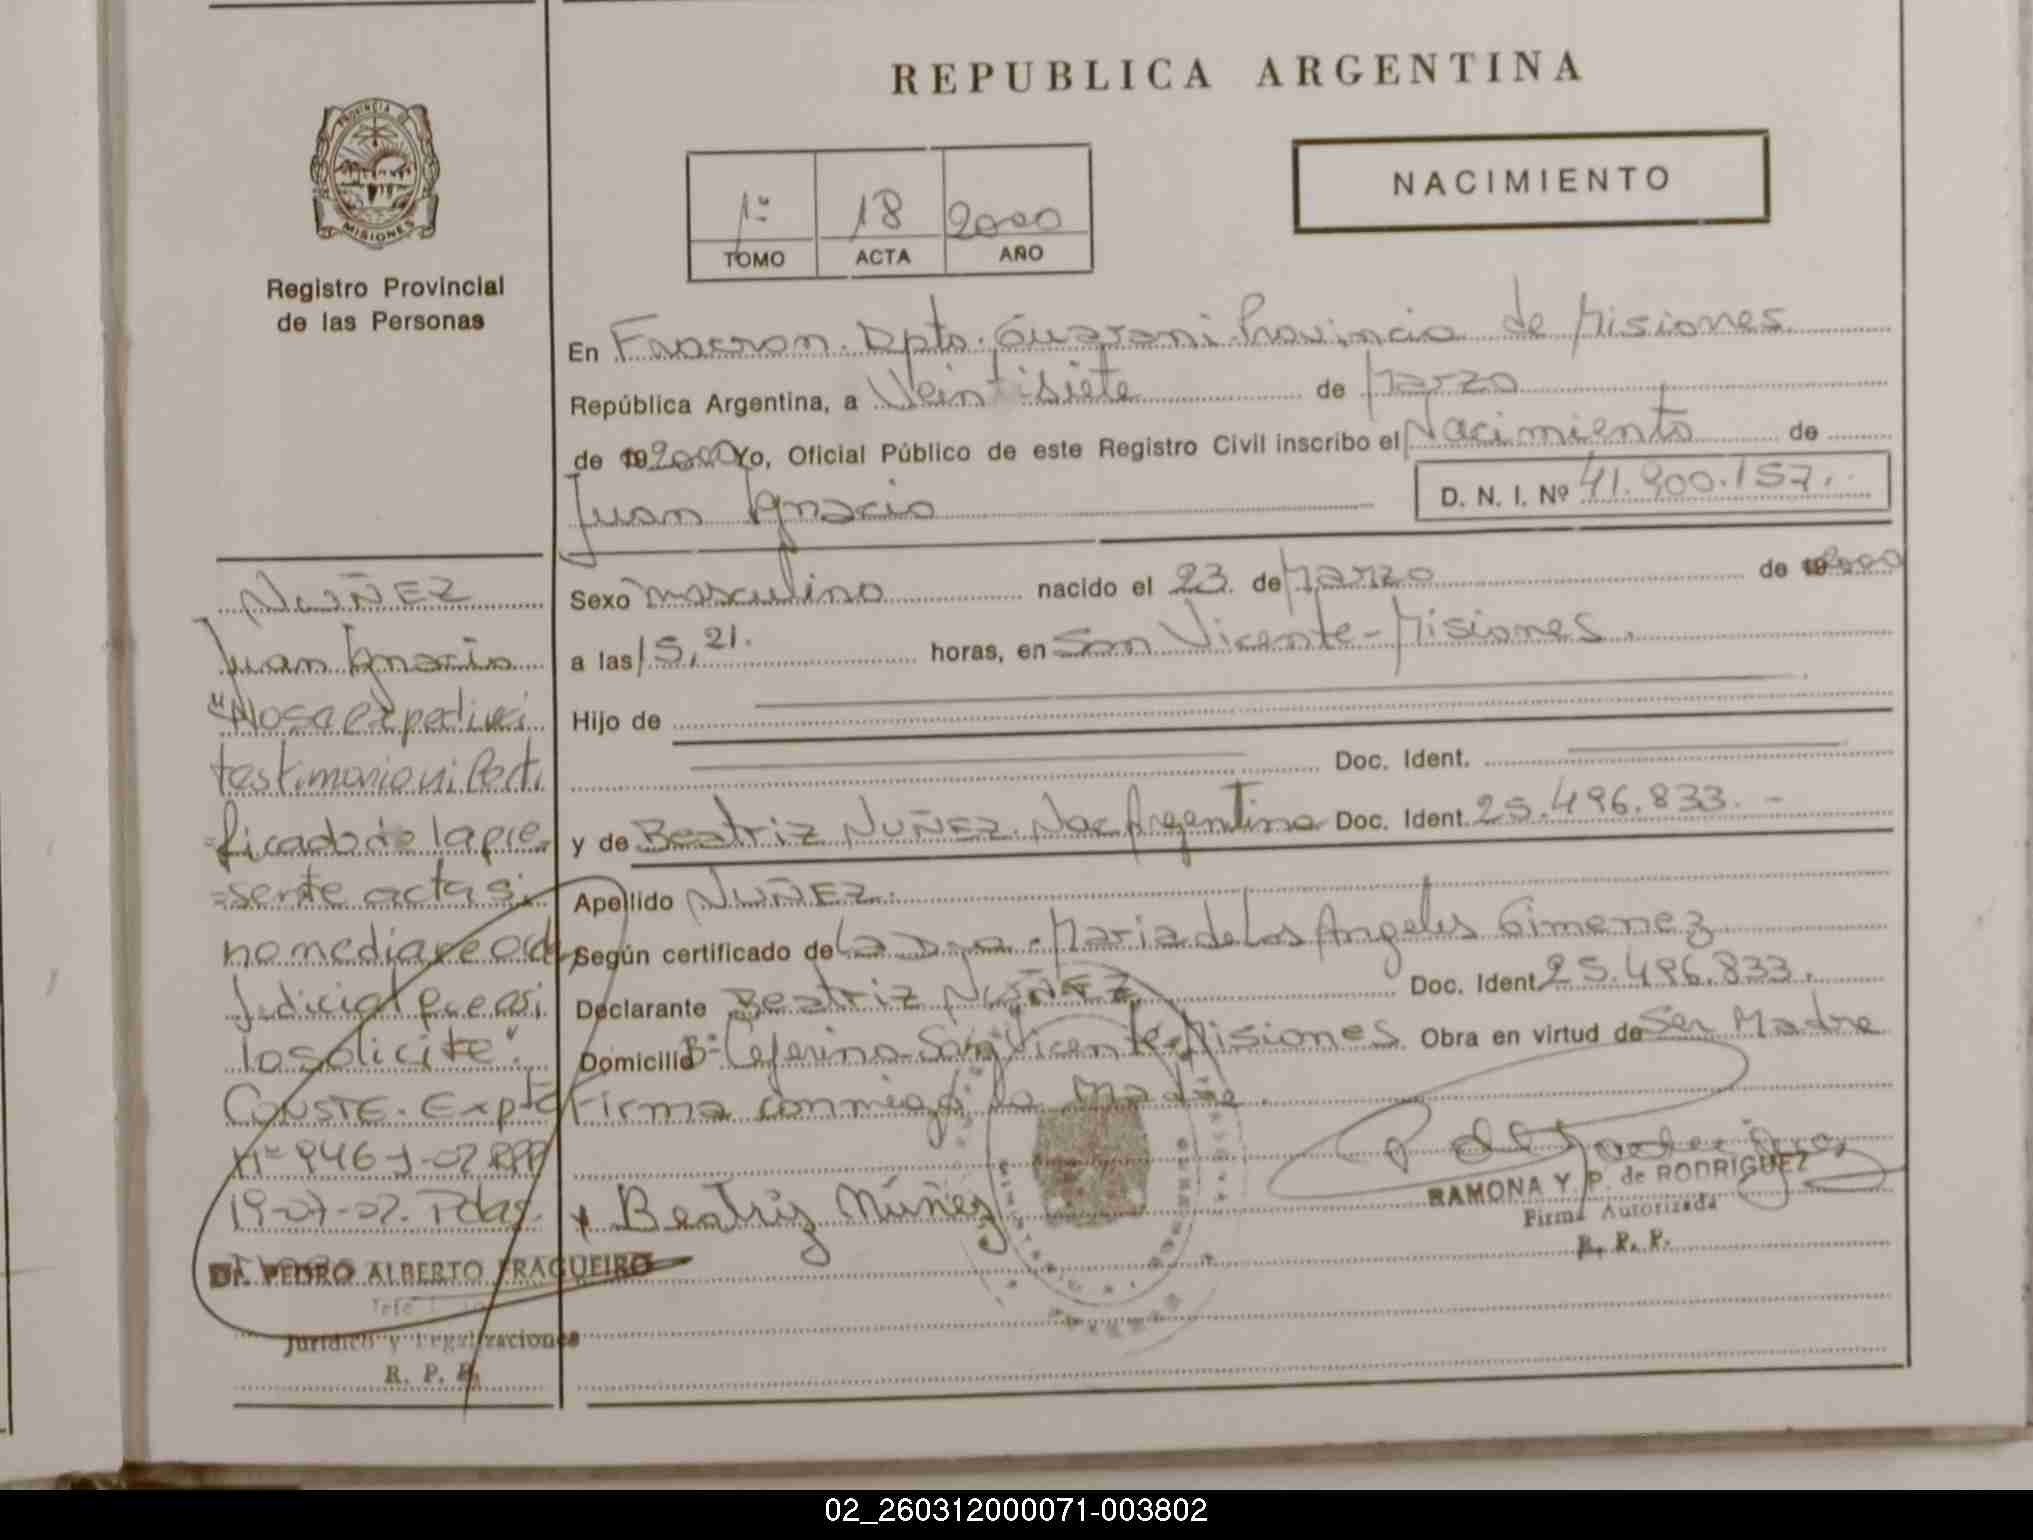 REPUBLICA ARGENTINA
PROVINCIA DE
MISIONES
Registro Provincial
de las Personas
1º 18 2000
TOMO ACTA AÑO
NACIMIENTO
En Fracran. Dpto. Guarani. Provincia de Misiones
República Argentina, a Veintisiete de Marzo
de 19 2000 Yo, Oficial Público de este Registro Civil inscribo el Nacimiento de
Juan Ignacio D. N. I. Nº 41.900.157.
Sexo masculino nacido el 23. de Marzo de 19 2000
a las 15,21. horas, en San Vicente - Misiones.
Hijo de
Doc. Ident.
y de Beatriz NUÑEZ. Nac Argentina Doc. Ident. 25.496.833. -
Apellido NUÑEZ.
Según certificado de La Dra. Maria de Los Angeles Gimenez
Declarante Beatriz NUÑEZ Doc. Ident. 25.496.833.
Domicilio Bº Ceferino San Vicente Misiones Obra en virtud de Ser Madre
Firma conmigo la Madre.
x Beatriz Núñez
RAMONA Y. P. de RODRIGUEZ
Firma Autorizada
R. P. P.
NUÑEZ
Juan Ignacio
"No se expedirá
testimonio ni Certi
ficado de la pre-
=sente acta si
no media
Judicial que asi
lo solicite".
CONSTE. Expte
Nº 02 RPP
19-07-02. Pdas.
Dr. PEDRO ALBERTO FRAGUEIRO
Jefe
Jurídico y Legalizaciones
R. P. P.
02_260312000071-003802